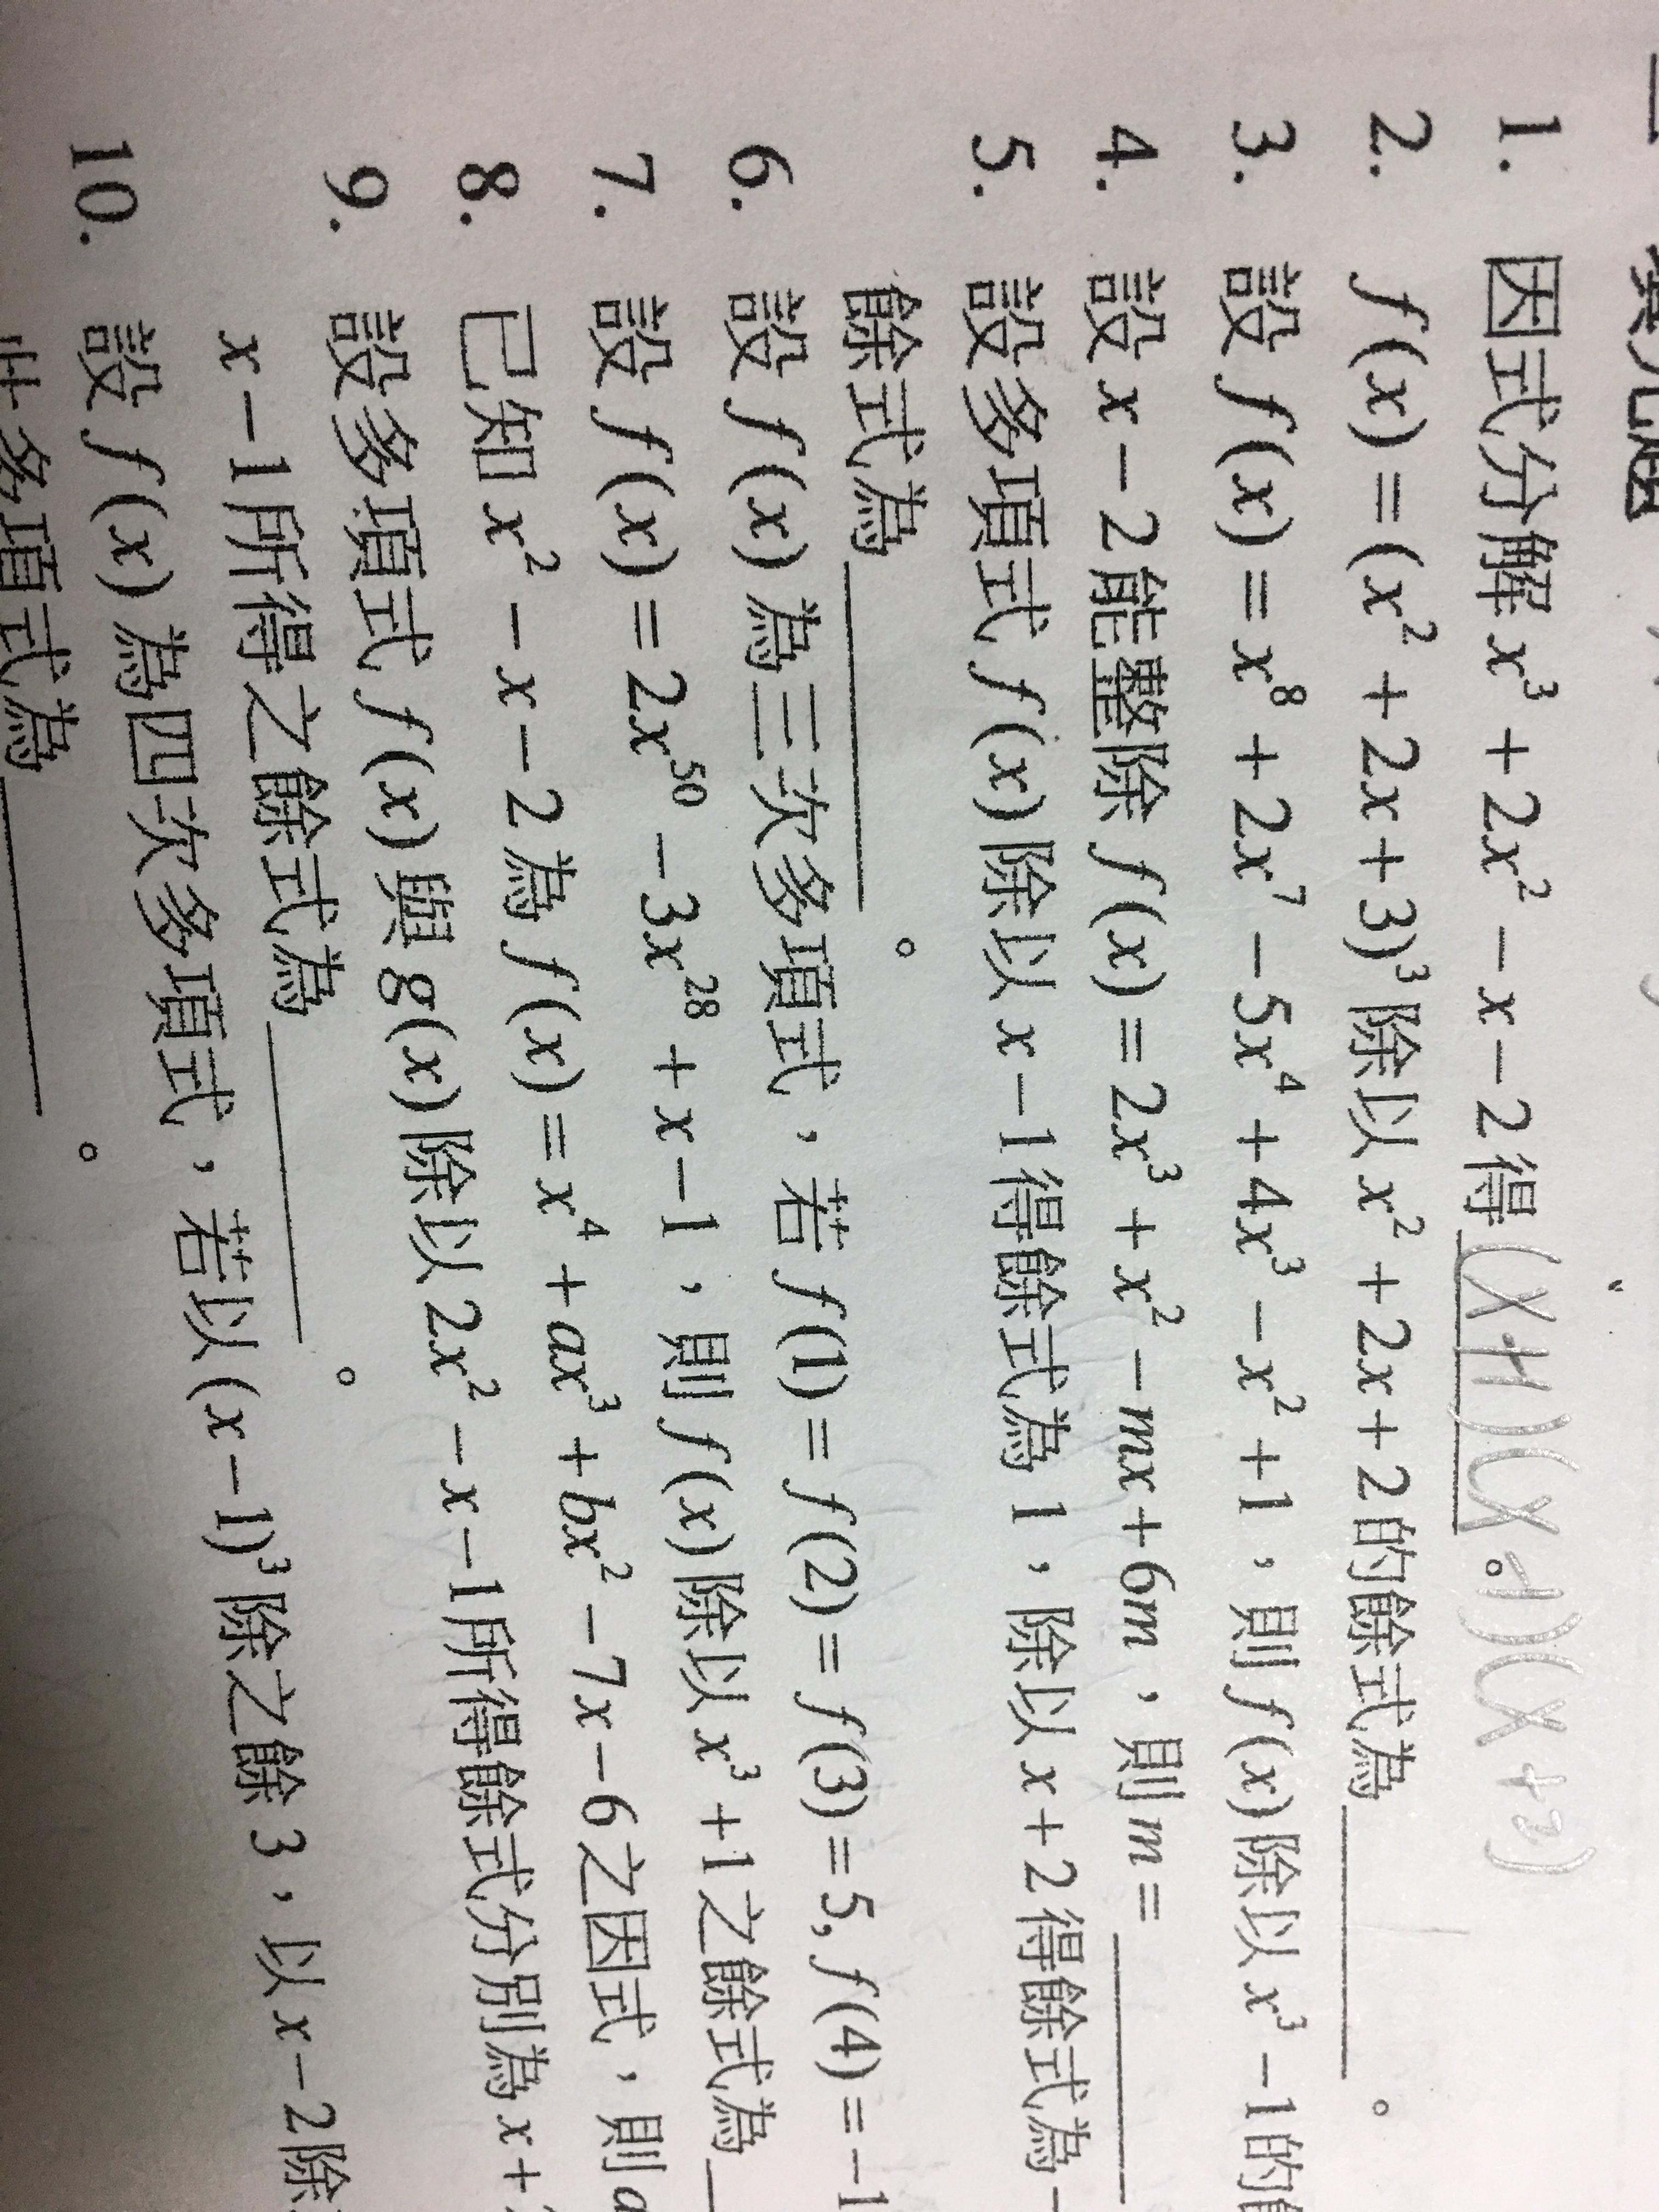 1. 因式分解 x³ + 2x² − x − 2 得 (x+1)(x-1)(x+2)。
2. f(x) = (x² + 2x + 3)³ 除以 x² + 2x + 2 的餘式為________。
3. 設 f(x) = x⁸ + 2x⁷ − 5x⁴ + 4x³ − x² + 1，則 f(x) 除以 x³ − 1 的
4. 設 x − 2 能整除 f(x) = 2x³ + x² − mx + 6m，則 m = ________
5. 設多項式 f(x) 除以 x − 1 得餘式為 1，除以 x + 2 得餘式為 −
餘式為________。
6. 設 f(x) 為三次多項式，若 f(1) = f(2) = f(3) = 5, f(4) = −1
7. 設 f(x) = 2x⁵⁰ − 3x²⁸ + x − 1，則 f(x) 除以 x³ + 1 之餘式為
8. 已知 x² − x − 2 為 f(x) = x⁴ + ax³ + bx² − 7x − 6 之因式，則 a
9. 設多項式 f(x) 與 g(x) 除以 2x² − x − 1 所得餘式分別為 x +
x − 1 所得之餘式為________。
10. 設 f(x) 為四次多項式，若以 (x − 1)³ 除之餘 3，以 x − 2 除
此多項式為________。